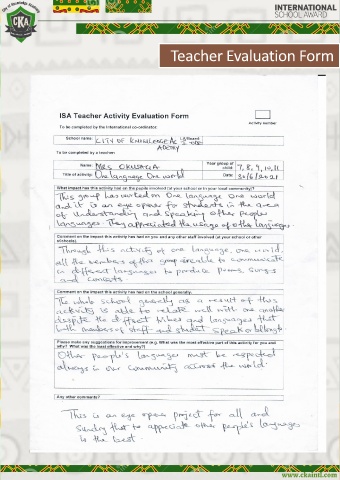 City of Knowledge Academy
CKA
INTERNATIONAL
SCHOOL AWARD
Teacher Evaluation Form
ISA Teacher Activity Evaluation Form
Activity number
To be completed by the international co-ordinator:
School name: CITY OF KNOWLEDGE AC
ADEMY
To be completed by a teacher:
Name: MRS
Year group of
child: 7, 8, 9, 10, 11
Title of activity: One language One world
Date: 30/6/2021
What impact has this activity had on the people involved (at your school or in your local community)?
This group has worked on One language One world
and it is an eye opener for students in the area
of understanding and speaking other peoples
languages. They appreciated the usage of other languages
Comment on the impact this activity has had on you and any other staff involved (at your school or other
school/s).
Through this activity of one language, one world,
all the members of the group are able to communicate
in different languages to produce poems, songs
and
Comment on the impact this activity has had on the school generally.
The whole school generally as a result of this
activity is able to relate well with one another
despite the different tribes and languages that
both members of staff and student speak or belong to
Please make any suggestions for improvement (e.g. What was the most effective part of this activity for you and
why? What was the least effective and why?)
Other people's languages must be respected
always in our community across the world.
Any other comments?
This is an eye opener project for all and
that to appreciate other people's languages
is the best.
www.ckaintl.com